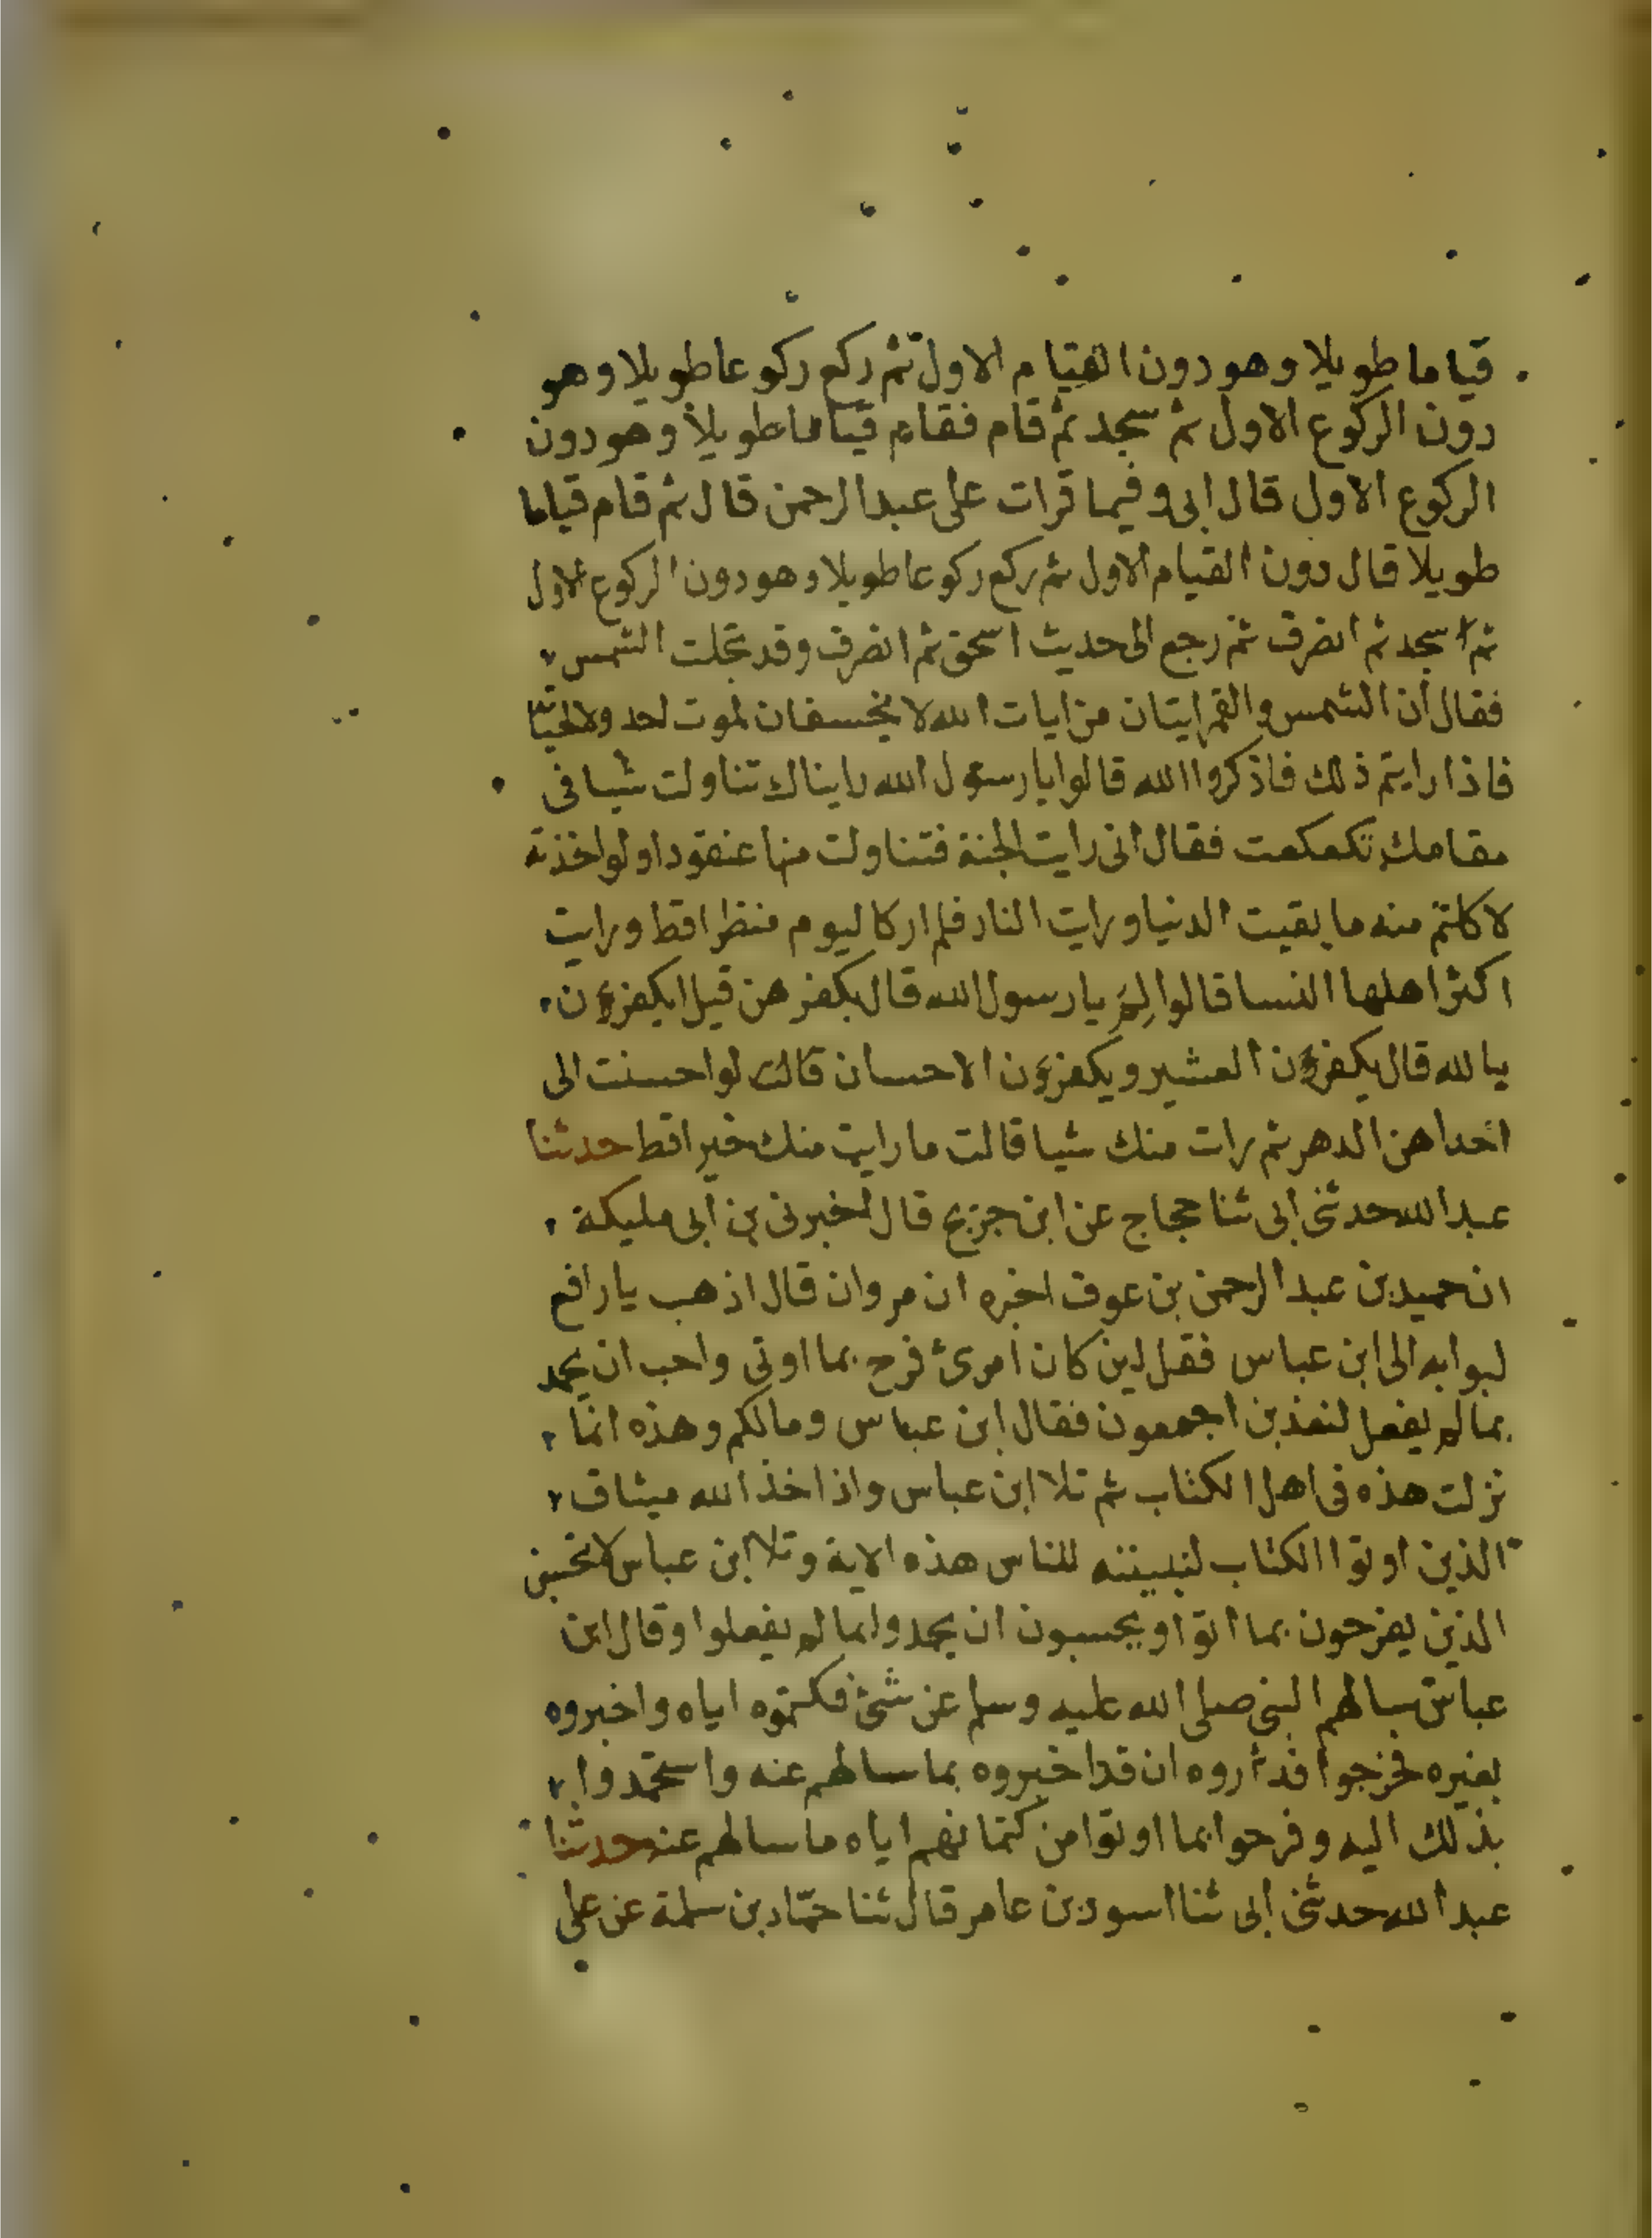 قياما طويلا وهو دون القيام الاول ثم ركع ركوعا طويلا وهو
دون الركوع الاول ثم سجد ثم قام فقام قياما طويلا وهو دون
الركوع الاول قال ابى وفيما قرات على عبد الرحمن قال ثم قام قياما
طويلا قال دون القيام الاول ثم ركع ركوعا طويلا وهو دون الركوع الاول
ثم سجد ثم انصرف ثم رجع الى حديث اسحق ثم انصرف وقد تجلت الشمس
فقال ان الشمس والقمر ايتان من ايات الله لا يخسفان لموت احد ولا لحياته
فاذا رايتم ذلك فاذكروا الله قالوا يا رسول الله رايناك تناولت شيا فى
مقامك تكعكعت فقال انى رايت الجنة فتناولت منها عنقودا ولو اخذته
لاكلتم منه ما بقيت الدنيا ورايت النار فلم ار كاليوم منظرا قط ورايت
اكثر اهلها النسا قالوا لِمَ يا رسول الله قال بكفرهن قيل ايكفرون
بالله قال يكفرون العشير ويكفرون الاحسان قالت لو احسنت الى
احداهن الدهر ثم رات منك شيا قالت ما رايت منك خيرا قط حدثنا
عبد الله حدثنى ابى ثنا حجاج عن ابن جريج قال اخبرنى بن ابى مليكة
ان حميد بن عبد الرحمن بن عوف اخبره ان مروان قال اذهب يا رافع
لبوابه الى ابن عباس فقل لين كان امرئ فرح بما اوتى واحب ان يحمد
بما لم يفعل لنعذبن اجمعون فقال ابن عباس ومالكم وهذه انما
نزلت هذه فى اهل الكتاب ثم تلا ابن عباس واذ اخذ الله ميثاق
الذين اوتوا الكتاب لتبيننه للناس هذه الاية وتلا ابن عباس لا تحسبن
الذين يفرحون بما اتوا ويحبسون ان يحمدوا بما لم يفعلوا وقال ابن
عباس سالهم النبى صلى الله عليه وسلم عن شئ فكتموه اياه واخبروه
بغيره فخرجوا قد اروه ان قد اخبروه بما سالهم عنه واستحمدوا
بذلك اليه وفرحوا بما اوتوا من كتمانهم اياه ما سالهم عنه حدثنا
عبد الله حدثنى ابى ثنا اسود بن عامر قال ثنا حمّاد بن سلمة عن على